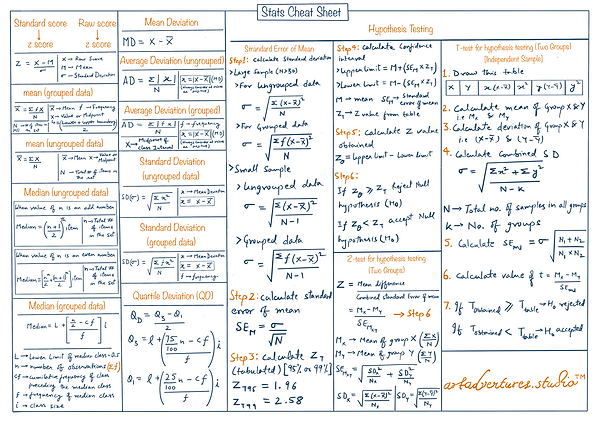 Stats Cheat Sheet
Standard score
↓
z score
Raw score
↓
z score
Z = X-M / σ
X → Raw Score
M → Mean
σ → Standard Deviation
mean (grouped data)
X̄ = ΣfX / N
X̄ → Mean f → Frequency
X → Value or Midpoint
mean (ungrouped data)
X̄ = ΣX / N
X̄ → Mean X → Value or Midpoint
N → Total no. of items in the set
Median (ungrouped data)
When value of n is an odd number
Median = (n+1 / 2)th item
n → Total no. of items in the set
When value of n is an even number
n → Total no. of items in the set
Median (grouped data)
Median = L + [n/2 - cf / f] i
L → Lower Limit of median class - 0.5
n → number of observations (Σf)
cf → cumulative frequency of class
preceding the median class
f → frequency of median class
i → class size
Mean Deviation
MD = X - X̄
Average Deviation (ungrouped)
AD = Σ|x| / N
x = |X - X̄| (MD)
Average Deviation (grouped)
AD = Σ|fx| / N
f → frequency
x = |X - X̄| (MD)
X → Midpoint of Class Interval
Standard Deviation
(ungrouped data)
SD(σ) = √Σx² / N
x → Mean Deviation
x = X - X̄
Standard Deviation
(grouped data)
SD(σ) = √Σfx² / N
x → Mean Deviation
x = X - X̄
f → frequency
Quartile Deviation (QD)
Q_D = Q₃ - Q₁ / 2
Q₃ = l + [75/100 n - cf / f] i
Q₁ = l + [25/100 n - cf / f] i
Hypothesis Testing
Strandard Error of Mean
Step1: calculate Standard deviation
>Large Sample (N>30)
>For Ungrouped data
σ = √Σ(x-x̄)² / N
>For Grouped data
σ = √Σf(x-x̄)² / N
>Small sample
>Ungrouped data
σ = √Σ(x-x̄)² / N-1
>Grouped data
σ = √Σf(x-x̄)² / N-1
Step2: calculate standard
error of mean
SE_M = σ / √N
Step3: calculate Z_T
(tabulated) [95% or 99%]
Z_T95 = 1.96
Z_T99 = 2.58
Step4: calculate Confidence
interval
>Upper Limit = M + (SE_M × Z_T)
>Lower Limit = M - (SE_M × Z_T)
M → mean SE_M → Standard error of mean
Z_T → Z value from table
Step5: calculate Z value
obtained
Z₀ = Upper Limit - Lower Limit
Step6:
If Z₀ ⩾ Z_T Reject Null
hypothesis (H₀)
If Z₀ < Z_T accept Null
hypothesis (H₀)
Z-test for hypothesis testing
(Two Groups)
Z = Mean difference / Combined Standard Error of mean
= M_X - M_Y / SE_MD → Step 6
M_X → Mean of group X (ΣX / N)
M_Y → Mean of group Y (ΣY / N)
T-test for hypothesis testing (Two Groups)
(Independent Sample)
1. Draw this table
X Y x(X-x̄) x² y(Y-ȳ) y²
2. Calculate mean of Group X & Y
i.e M_X & M_Y
3. Calculate deviation of group X & Y
i.e (X-x̄) & (Y-ȳ)
4. Calculate combined SD
σ = √Σx² + Σy² / N-K
N → Total no. of samples in all groups
k → No. of groups
5. Calculate SE_MD = σ √N₁+N₂ / N₁×N₂
6. Calculate value of t = M_X - M_Y / SE_MD
7. If T obtained ⩾ T table → H₀ rejected
If T obtained < T table → H₀ accepted
artadventures.studio™